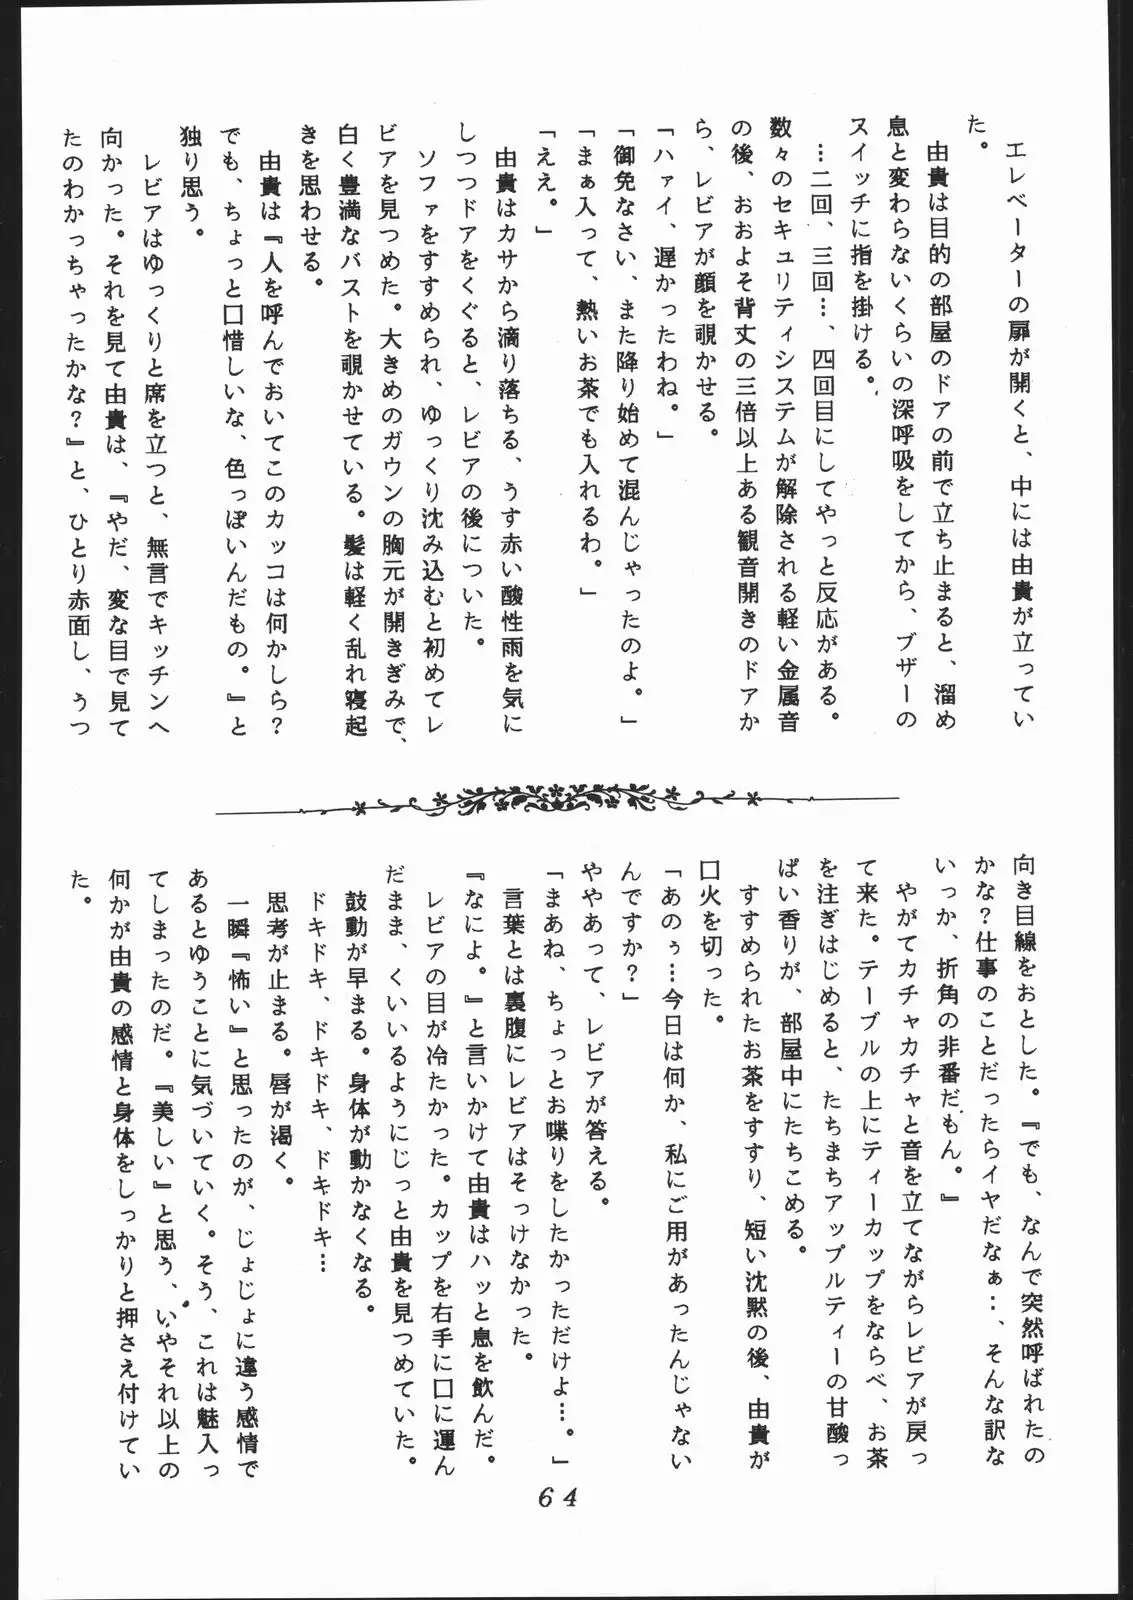 エレベーターの扉が開くと、中には由貴が立ってい
た。
由貴は目的の部屋のドアの前で立ち止まると、溜め
息と変わらないくらいの深呼吸をしてから、ブザーの
スイッチに指を掛ける。
…二回、三回…、四回目にしてやっと反応がある。
数々のセキュリティシステムが解除される軽い金属音
の後、おおよそ背丈の三倍以上ある観音開きのドアか
ら、レビアが顔を覗かせる。
「ハァイ、遅かったわね。」
「御免なさい、また降り始めて混んじゃったのよ。」
「まぁ入って、熱いお茶でも入れるわ。」
「ええ。」
由貴はカサから滴り落ちる、うす赤い酸性雨を気に
しつつドアをくぐると、レビアの後についた。
ソファをすすめられ、ゆっくり沈み込むと初めてレ
ビアを見つめた。大きめのガウンの胸元が開きぎみで、
白く豊満なバストを覗かせている。髪は軽く乱れ寝起
きを思わせる。
由貴は『人を呼んでおいてこのカッコは何かしら?
でも、ちょっと口惜しいな、色っぽいんだもの。』と
独り思う。
レビアはゆっくりと席を立つと、無言でキッチンへ
向かった。それを見て由貴は、『やだ、変な目で見て
たのわかっちゃったかな?』と、ひとり赤面し、うつ
向き目線をおとした。『でも、なんで突然呼ばれたの
かな?仕事のことだったらイヤだなぁ…、そんな訳な
いっか、折角の非番だもん。』
やがてカチャカチャと音を立てながらレビアが戻っ
て来た。テーブルの上にティーカップをならべ、お茶
を注ぎはじめると、たちまちアップルティーの甘酸っ
ぱい香りが、部屋中にたちこめる。
すすめられたお茶をすすり、短い沈黙の後、由貴が
口火を切った。
「あのぅ…今日は何か、私にご用があったんじゃない
んですか?」
ややあって、レビアが答える。
「まあね、ちょっとお喋りをしたかっただけよ…。」
言葉とは裏腹にレビアはそっけなかった。
『なによ。』と言いかけて由貴はハッと息を飲んだ。
レビアの目が冷たかった。カップを右手に口に運ん
だまま、くいいるようにじっと由貴を見つめていた。
鼓動が早まる。身体が動かなくなる。
ドキドキ、ドキドキ、ドキドキ…
思考が止まる。唇が渇く。
一瞬『怖い』と思ったのが、じょじょに違う感情で
あるとゆうことに気づいていく。そう、これは魅入っ
てしまったのだ。『美しい』と思う、いやそれ以上の
何かが由貴の感情と身体をしっかりと押さえ付けてい
た。
64